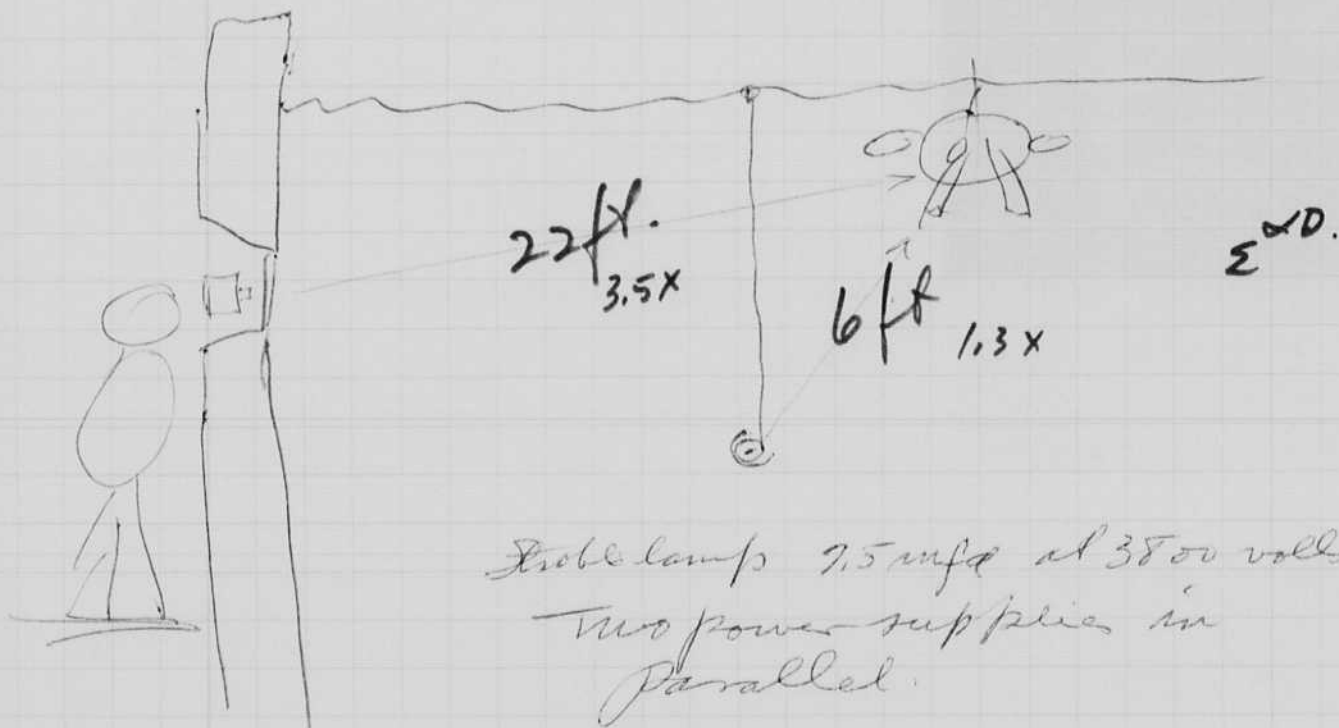 22 ft.
3.5 x
6 ft
1.3 x
Ɛ αD.
Strobe lamp 7.5 mfd at 3800 volts
Two power supplies in
parallel.